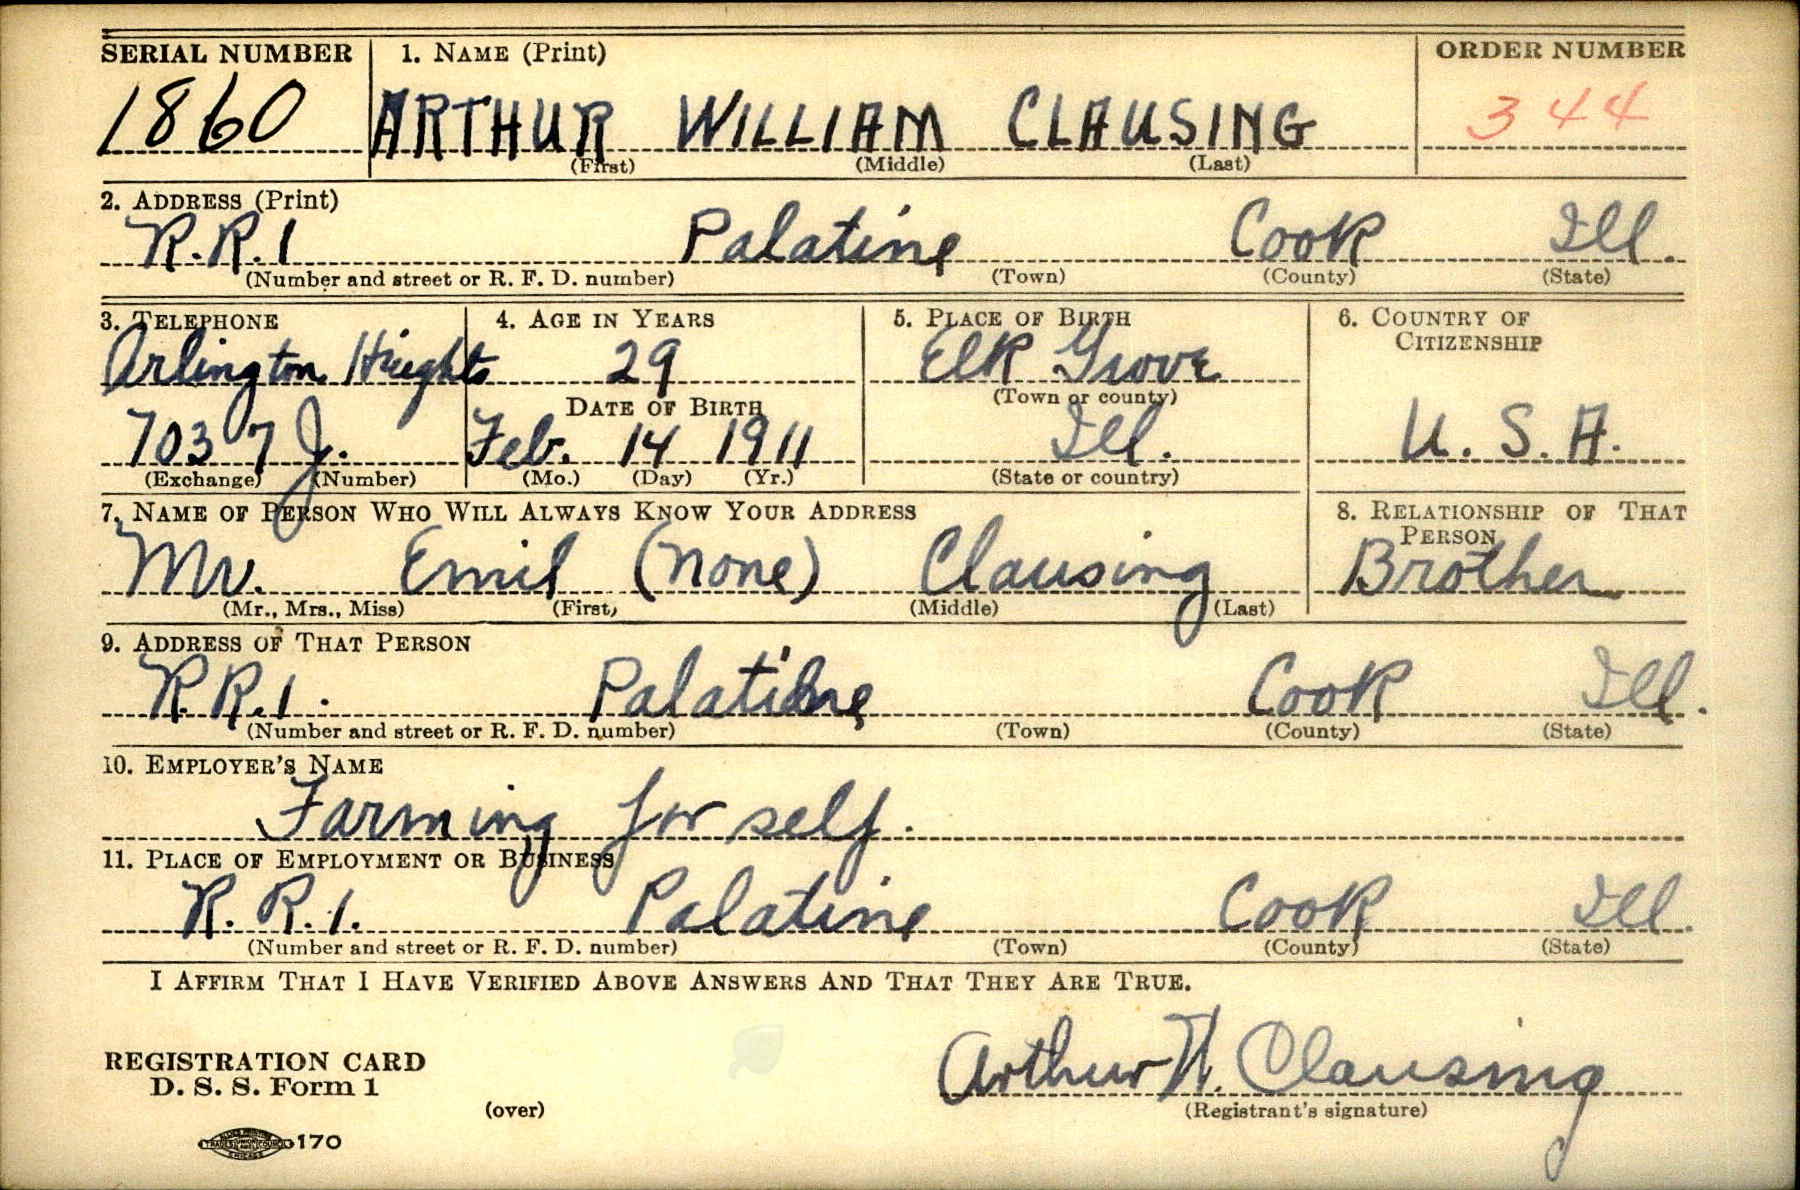 SERIAL NUMBER 1. NAME (Print) ORDER NUMBER
1860 ARTHUR WILLIAM CLAUSING 344
(First) (Middle) (Last)
2. ADDRESS (Print)
R.R.1 Palatine Cook Ill.
(Number and street or R. F. D. number) (Town) (County) (State)
3. TELEPHONE 4. AGE IN YEARS 5. PLACE OF BIRTH 6. COUNTRY OF
CITIZENSHIP
Arlington Heights 29 Elk Grove
DATE OF BIRTH (Town or county)
7037 J. Feb. 14 1911 Ill. U. S. A.
(Exchange) (Number) (Mo.) (Day) (Yr.) (State or country)
7. NAME OF PERSON WHO WILL ALWAYS KNOW YOUR ADDRESS 8. RELATIONSHIP OF THAT
PERSON
Mr. Emil (none) Clausing Brother
(Mr., Mrs., Miss) (First) (Middle) (Last)
9. ADDRESS OF THAT PERSON
R.R.1. Palatine Cook Ill.
(Number and street or R. F. D. number) (Town) (County) (State)
10. EMPLOYER'S NAME
Farming for self.
11. PLACE OF EMPLOYMENT OR BUSINESS
R. R. 1. Palatine Cook Ill.
(Number and street or R. F. D. number) (Town) (County) (State)
I AFFIRM THAT I HAVE VERIFIED ABOVE ANSWERS AND THAT THEY ARE TRUE.
REGISTRATION CARD
D. S. S. Form 1 Arthur W. Clausing
(over) (Registrant's signature)
170